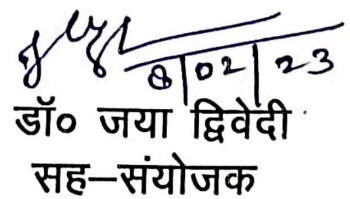 8|02|23
डॉ० जया द्विवेदी
सह–संयोजक